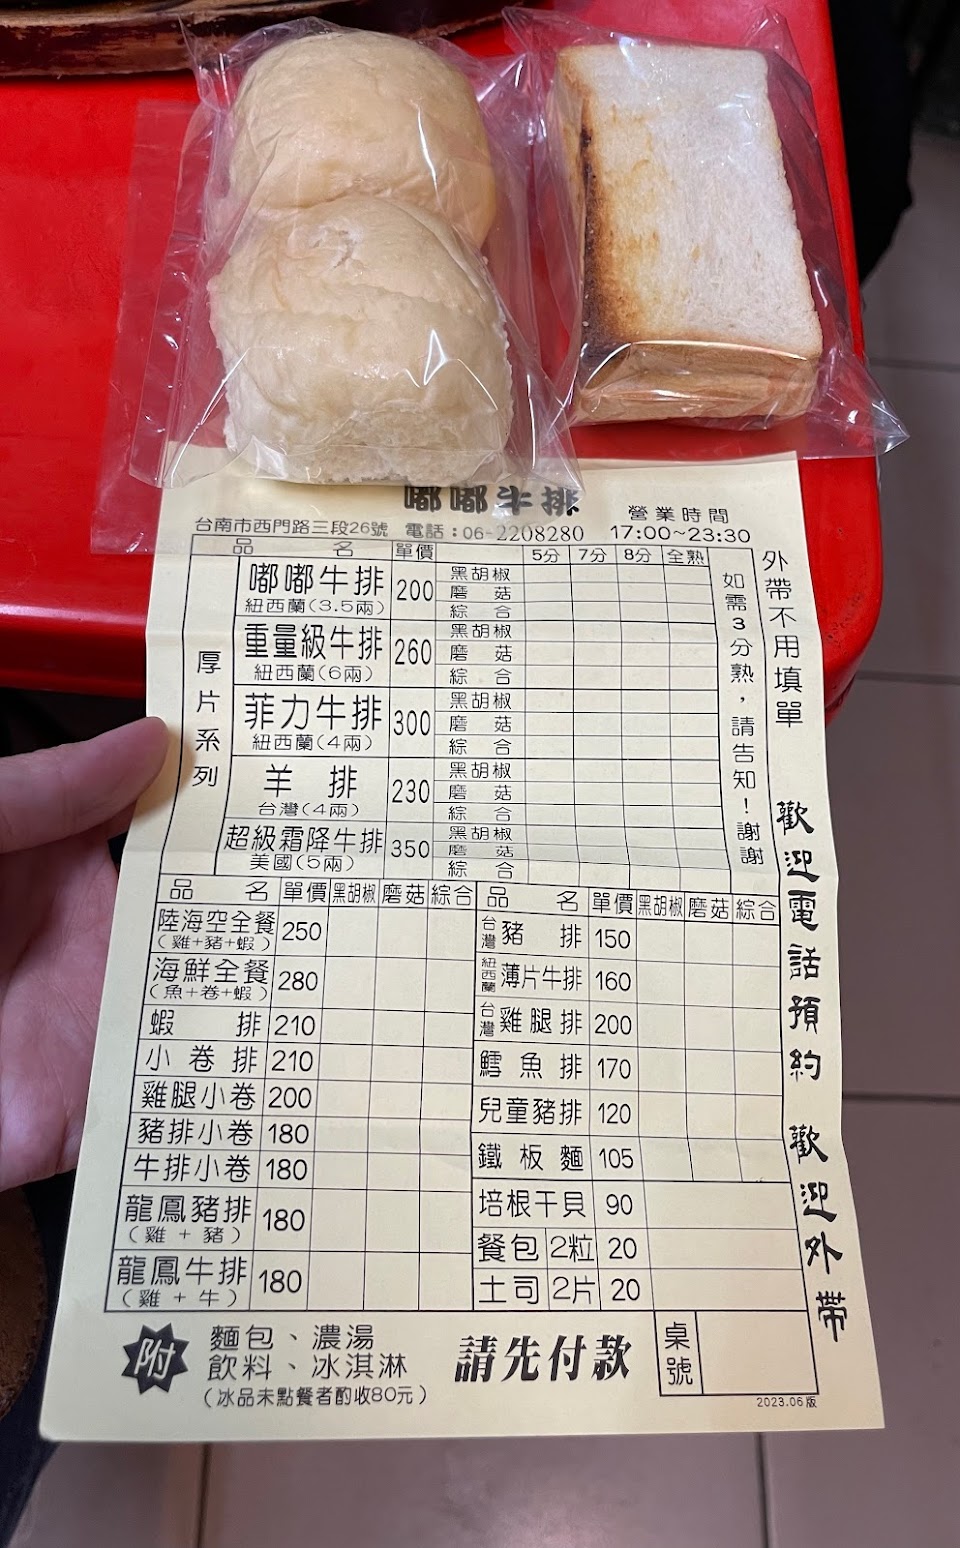 嘟嘟牛排
台南市西門路三段26號 電話：06-2208280
營業時間
17:00~23:30
品名 單價 5分 7分 8分 全熟
厚片系列
嘟嘟牛排 200 黑胡椒
紐西蘭(3.5兩) 磨菇
綜合
重量級牛排 260 黑胡椒
紐西蘭(6兩) 磨菇
綜合
菲力牛排 300 黑胡椒
紐西蘭(4兩) 磨菇
綜合
羊排 230 黑胡椒
台灣(4兩) 磨菇
綜合
超級霜降牛排 350 黑胡椒
美國(5兩) 磨菇
綜合
如需3分熟，請告知！謝謝
外帶不用填單
歡迎電話預約 歡迎外帶
品名 單價 黑胡椒 磨菇 綜合
陸海空全餐 250
(雞+豬+蝦)
海鮮全餐 280
(魚+卷+蝦)
蝦排 210
小卷排 210
雞腿小卷 200
豬排小卷 180
牛排小卷 180
龍鳳豬排 180
(雞+豬)
龍鳳牛排 180
(雞+牛)
品名 單價 黑胡椒 磨菇 綜合
台灣豬排 150
紐西蘭薄片牛排 160
台灣雞腿排 200
鱈魚排 170
兒童豬排 120
鐵板麵 105
培根干貝 90
餐包 2粒 20
土司 2片 20
附 麵包、濃湯
飲料、冰淇淋
(冰品未點餐者酌收80元)
請先付款
桌號
2023.06版